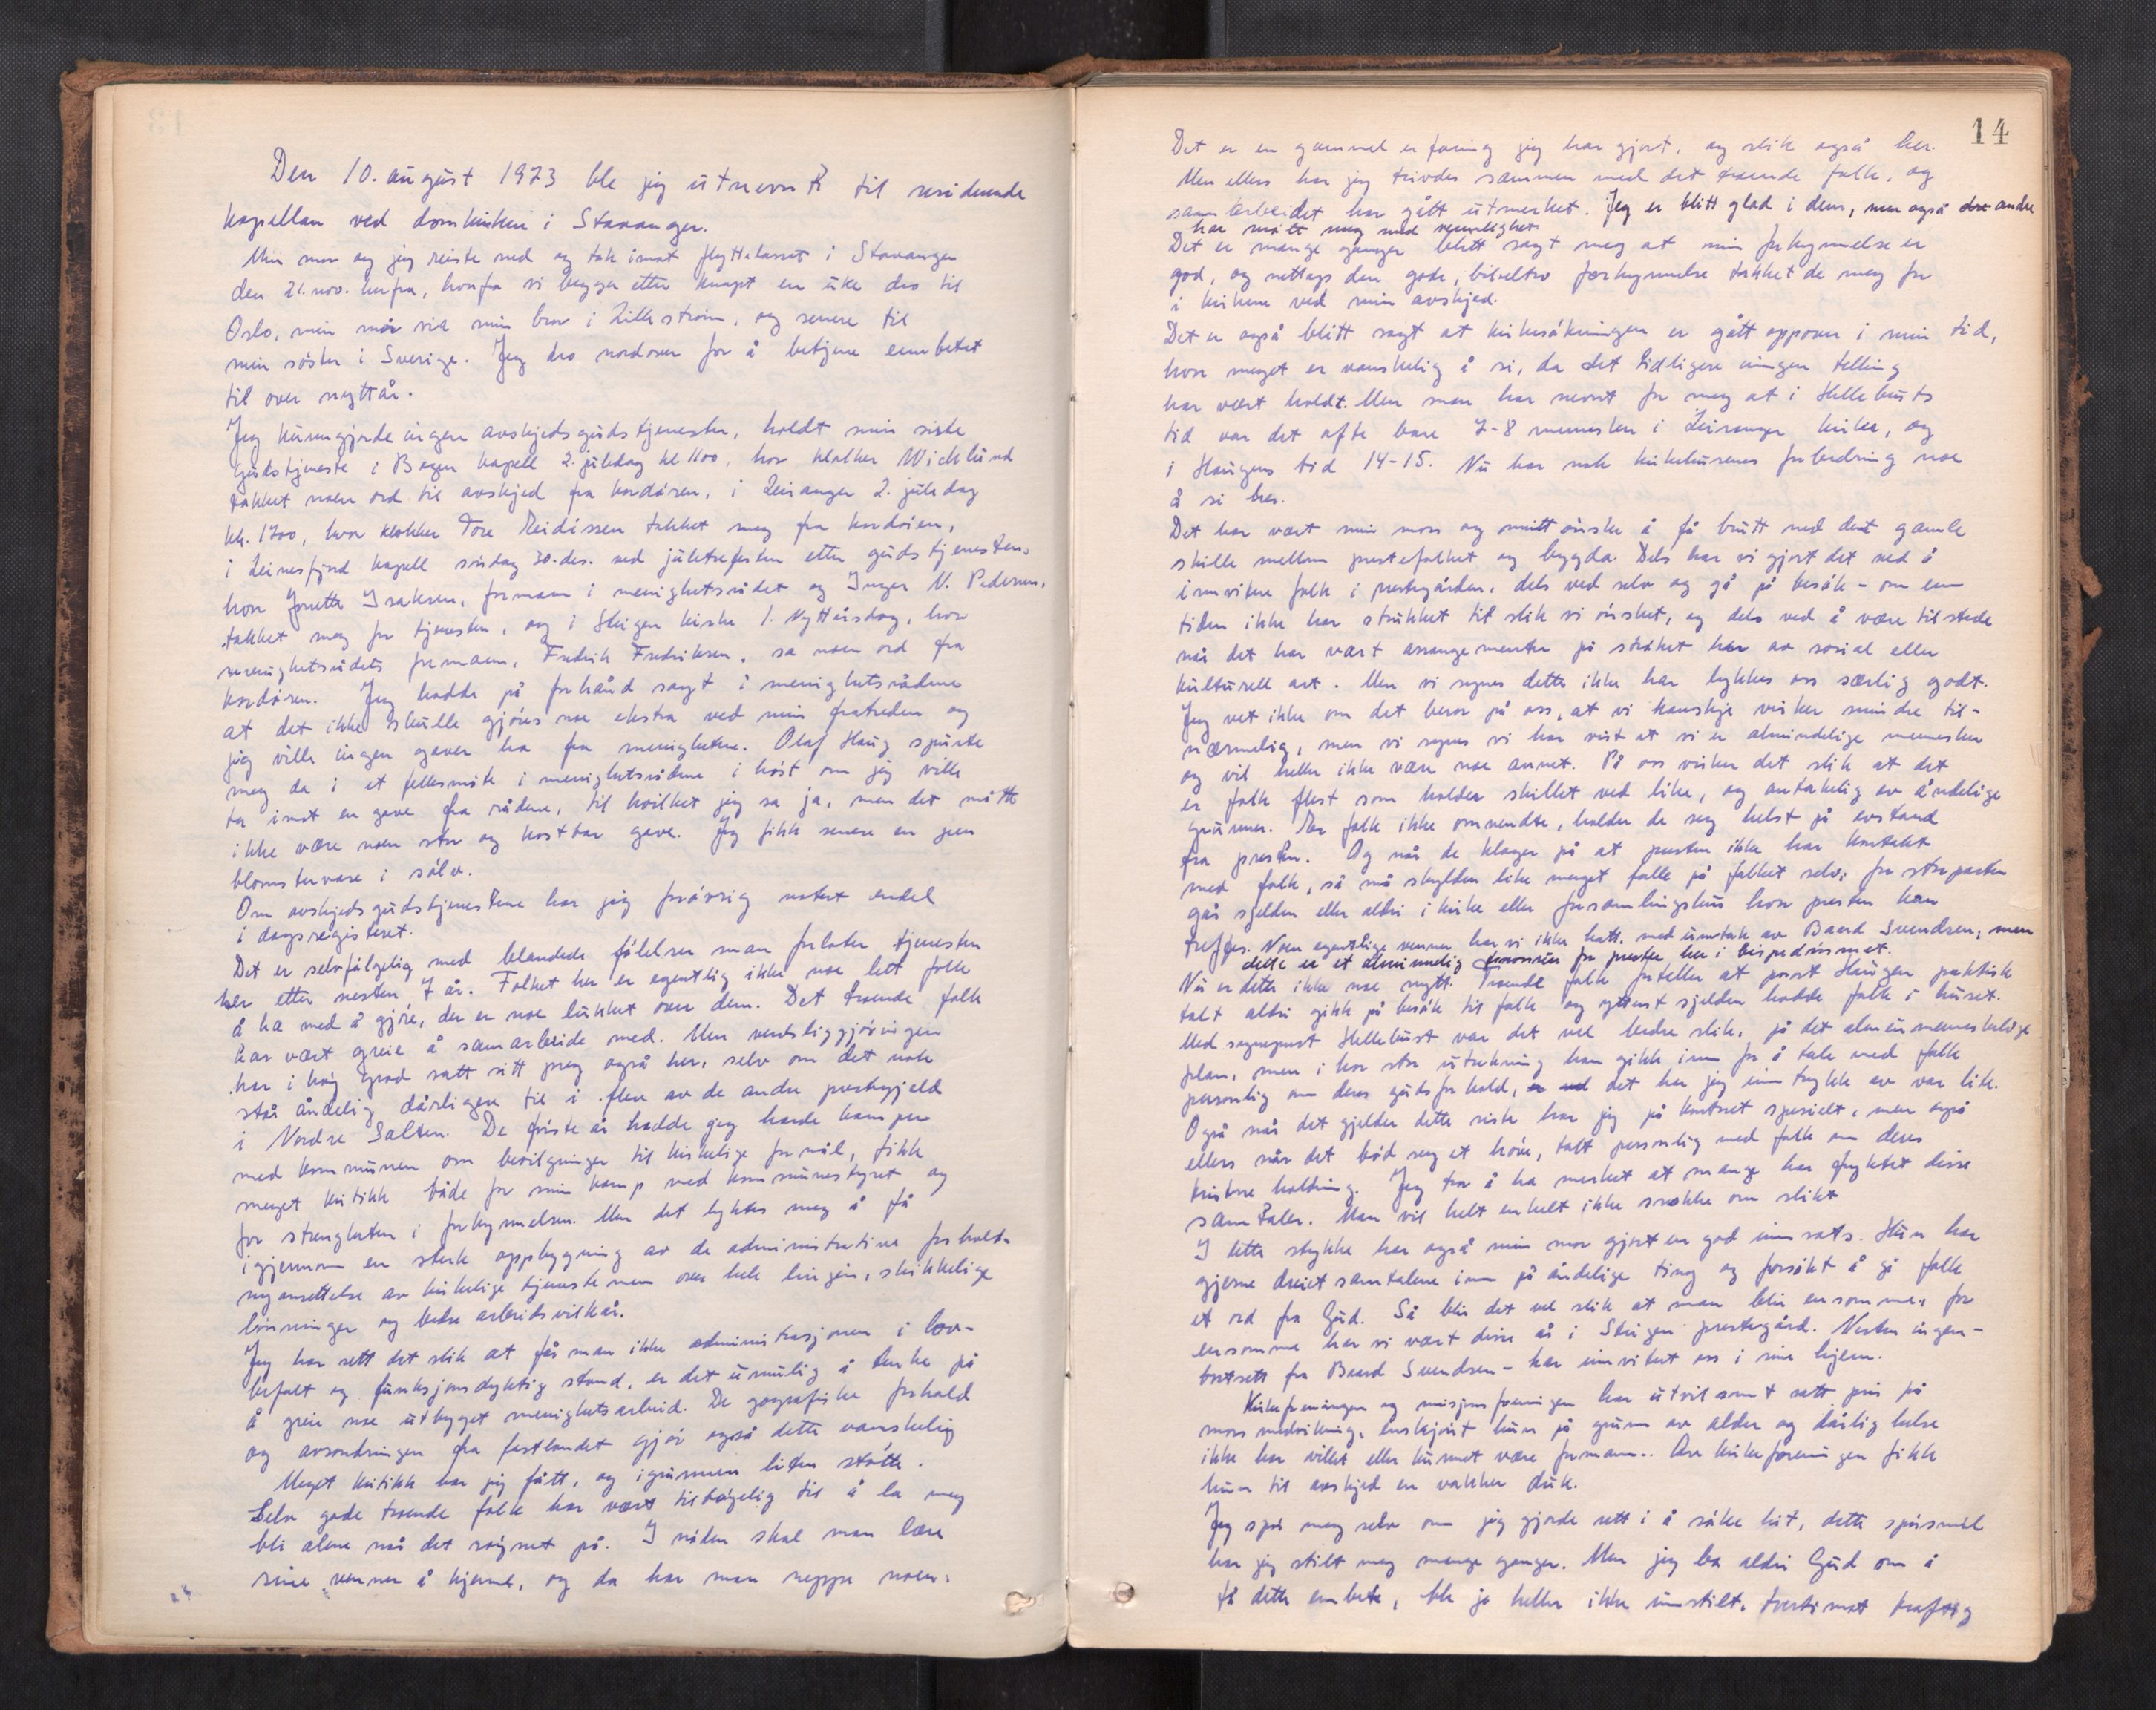 Den 10. august 1973 ble jeg utnevnt til residerende
kapellan ved domkirken i Stavanger.
Min mor og jeg reiste ned og tok imot flyttelasset i Stavanger
den 21. nov. herfra, hvorfra vi begge etter knapt en uke dro til
Oslo, min mor via min bror i Lillestrøm, og senere til
min søster i Sverige. Jeg dro nordover for å betjene embetet
til over nyttår.
Jeg kunngjorde ingen avskjedsgudstjenester, holdt min siste
gudstjeneste i Bogen kapell 2. juledag kl. 1100, hvor klokker Wicklund
takket noen ord til avskjed fra kordøren, i Leiranger 2. juledag
kl. 1700, hvor klokker Tore Reidissen takket meg fra kordøren,
i Leinesfjord kapell søndag 30. des. ved juletrefesten etter gudstjenesten,
hvor Joruette Isaksen, formann i menighetsrådet og Inger N. Pedersen,
takket meg for tjenesten, og i Steigen kirke 1. Nyttårsdag, hvor
menighetsrådets formann, Fredrik Fredriksen, sa noen ord fra
kordøren. Jeg hadde på forhånd sagt i menighetsrådene
at det ikke skulle gjøres noe ekstra ved min fratreden og
jeg ville ingen gaver ha fra menighetene. Olaf Haug spurte
meg da i et fellesmøte i menighetsrådene i høst om jeg ville
ta imot en gave fra rådene, til hvilket jeg sa ja, men det måtte
ikke være noen stor og kostbar gave. Jeg fikk senere en pen
blomstervase i sølv.
Om avskjedsgudstjenestene har jeg forøvrig notert endel
i dagsregisteret.
Det er selvfølgelig med blandede følelser man forlater tjenesten
her etter nesten 7 år. Folket her er egentlig ikke noe lett folk
å ha med å gjøre, der er noe lukket over dem. Det troende folk
har vært greie å samarbeide med. Men verdsliggjøringen
har i høy grad satt sitt preg også her, selv om det nok
står åndelig dårligere til i flere av de andre prestegjeld
i Nordre Salten. De første år hadde jeg harde kamper
med kommunen om bevilgninger til kirkelige formål, fikk
meget kritikk både for min kamp med kommunestyret og
for strengheten i forkynnelsen. Men det lyktes meg å få
igjennom en sterk oppbygning av de administrative forhold,
nyansettelse av kirkelige tjenestemenn over hele linjen, skikkelige
lønninger og bedre arbeidsvilkår.
Jeg har sett det slik at får man ikke administrasjonen i lov-
befalt og funksjonsdyktig stand, er det umulig å tenke på
å greie noe utbygget menighetsarbeid. De geografiske forhold
og avsondringen fra fastlandet gjør også dette vanskelig
Meget kritikk har jeg fått, og igrunnen liten støtte.
Selv gode troende folk har vært tilbøyelig til å la meg
bli alene når det røynet på. I nøden skal man lære
sine venner å kjenne, og da har man neppe noen.
14
Det er en gammel erfaring jeg har gjort, og slik også her.
Men ellers har jeg trivdes sammen med det troende folk, og
samarbeidet har gått utmerket. Jeg er blitt glad i dem, men også andre
har møtt meg med vennlighet.
Det er mange ganger blitt sagt meg at min forkynnelse er
god, og nettopp den gode, bibeltro forkynnelse takket de meg for
i kirkene ved min avskjed.
Det er også blitt sagt at kirkesøkningen er gått oppover i min tid,
hvor meget er vanskelig å si, da det tidligere ingen telling
har vært holdt. Men man har nevnt for meg at i Hellebusts
tid var det ofte bare 7-8 mennesker i Leiranger kirke, og
i Haugens tid 14-15. Nu har nok kirketurenes forbedring noe
å si her.
Det har vært min mors og mitt ønske å få brutt ned det gamle
skille mellom prestefolket og bygda. Dels har vi gjort det ved å
innvitere folk i prestegården, dels ved selv og gå på besøk - om enn
tiden ikke har strukket til slik vi ønsket, og dels ved å være tilstede
når det har vært arrangementer på strøket her av sosial eller
kulturell art. Men vi synes dette ikke har lykkes oss særlig godt.
Jeg vet ikke om det beror på oss, at vi kanskje virker mindre til-
nærmelig, men vi synes vi har vist at vi er almindelige mennesker
og vil heller ikke være noe annet. På oss virker det slik at det
er folk flest som holder skillet ved like, og antakelig av åndelige
grunner. Er folk ikke omvendte, holder de seg helst på avstand
fra presten. Og når de klager på at presten ikke har kontakt
med folk, så må skylden like meget falle på folket selv, for storparten
går sjelden eller aldri i kirke eller forsamlingshus hvor presten kan
treffes. Noen egentlige venner har vi ikke hatt, med unntak av Baard Svendsen, men
dette er et almindelig for prester her i bispedømmet.
Nu er dette ikke noe nytt. Troende folk forteller at prost Haugen praktisk
talt aldri gikk på besøk til folk og ytterst sjelden hadde folk i huset.
Med sogneprest Hellebust var det vel bedre slik, på det almenmenneskelige
plan, men i hvor stor utstrekning han gikk inn for å tale med folk
personlig om deres gudsforhold, det har jeg inntrykk av var lite.
Også når det gjelder dette siste har jeg på kontoret spesielt, men også
ellers når det bød seg et høve, talt personlig med folk om deres
kristne holdning. Jeg tror å ha merket at mange har fryktet disse
samtaler. Man vil helt enkelt ikke snakke om slikt
I dette stykke har også min mor gjort en god innsats. Hun har
gjerne dreiet samtalene inn på åndelige ting og forsøkt å gi folk
et ord fra Gud. Så blir det vel slik at man blir ensomme, for
ensomme har vi vært disse år i Steigen prestegård. Nesten ingen -
bortsett fra Baard Svendsen - har innvitert oss i sine hjem.
Kirkeforeningen og misjonsforeningen har utvilsomt satt pris på
mors medvirkning, enskjønt hun på grunn av alder og dårlig helse
ikke har villet eller kunnet være formann.. Av kirkeforeningen fikk
hun til avskjed en vakker duk.
Jeg spør meg selv om jeg gjorde rett i å søke hit, dette spørsmål
har jeg stilt meg mange ganger. Men jeg ba aldri Gud om å
få dette embete, ble jo heller ikke innstilt, tvertimot kraftig